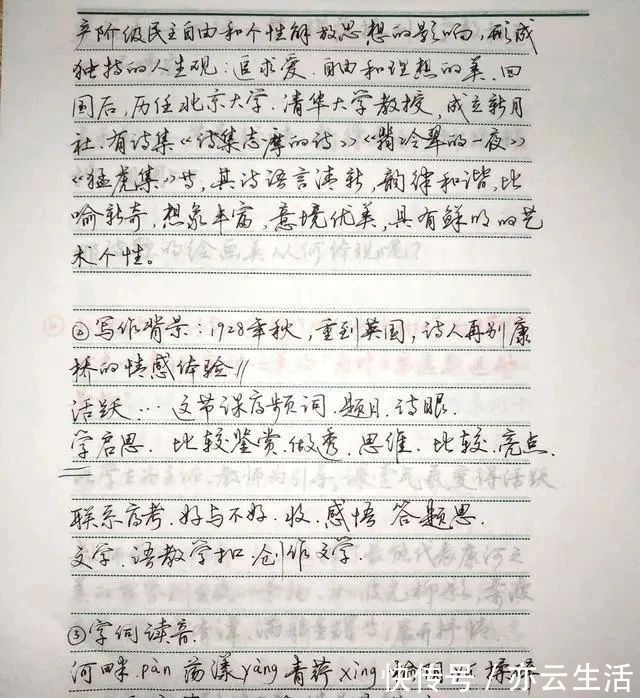 产阶级民主自由和个性解放思想的影响,形成
独特的人生观:追求爱.自由和理想的美.回
国后,历任北京大学.清华大学教授,成立新月
社.有诗集《诗集志摩的诗》《翡冷翠的一夜》
《猛虎集》等,其诗语言清新,韵律和谐,比
喻新奇,想象丰富,意境优美,具有鲜明的艺
术个性。
②写作背景:1928年秋,重到英国,诗人再别康
桥的情感体验//
活跃…这节课高频词.题目.诗眼.
学启思.比较鉴赏.做透.思维.比较.亮点.
联系高考.好与不好.收.感悟 答题思.
文字.语教学扣.创作文学.
③字词读音
河畔pàn 荡漾yàng 青荇xìng
快传号/亦云生活